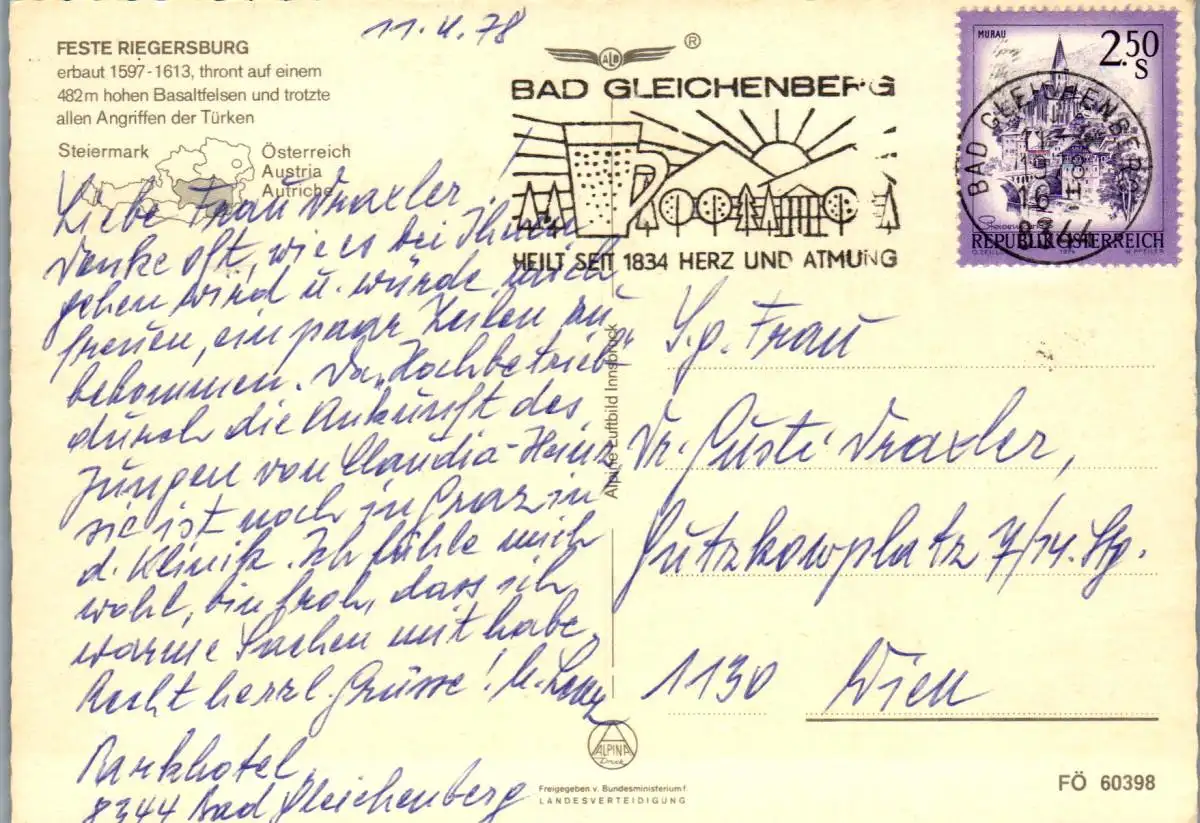 11. 4. 78
FESTE RIEGERSBURG
erbaut 1597-1613, thront auf einem
482m hohen Basaltfelsen und trotzte
allen Angriffen der Türken
Steiermark
Österreich
Austria
Autriche
Liebe Frau Draxler!
Denke oft, wie es bei Ihnen
gehen wird u. würde mich
freuen, ein paar Zeilen zu
bekommen. Da „Hochbetrieb“
durch die Ankunft des
Jungen von Claudia-Heinz
sie ist noch in Graz in
d. Klinik. Ich fühle mich
wohl, bin froh, dass ich
warme Sachen mit habe.
Recht herzl. Grüsse!
Parkhotel
8344 Bad Gleichenberg
ALB
®
BAD GLEICHENBERG
HEILT SEIT 1834 HERZ UND ATMUNG
MURAU
2.50
S
REPUBLIK ÖSTERREICH
BAD GLEICHENBERG
8344
Alpine Luftbild Innsbruck
S.g. Frau
Dr. Gusti Draxler,
Gutzkowplatz 7/14. Stg.
1130 Wien
ALPINA
Druck
Freigegeben v. Bundesministerium f.
LANDESVERTEIDIGUNG
FÖ 60398